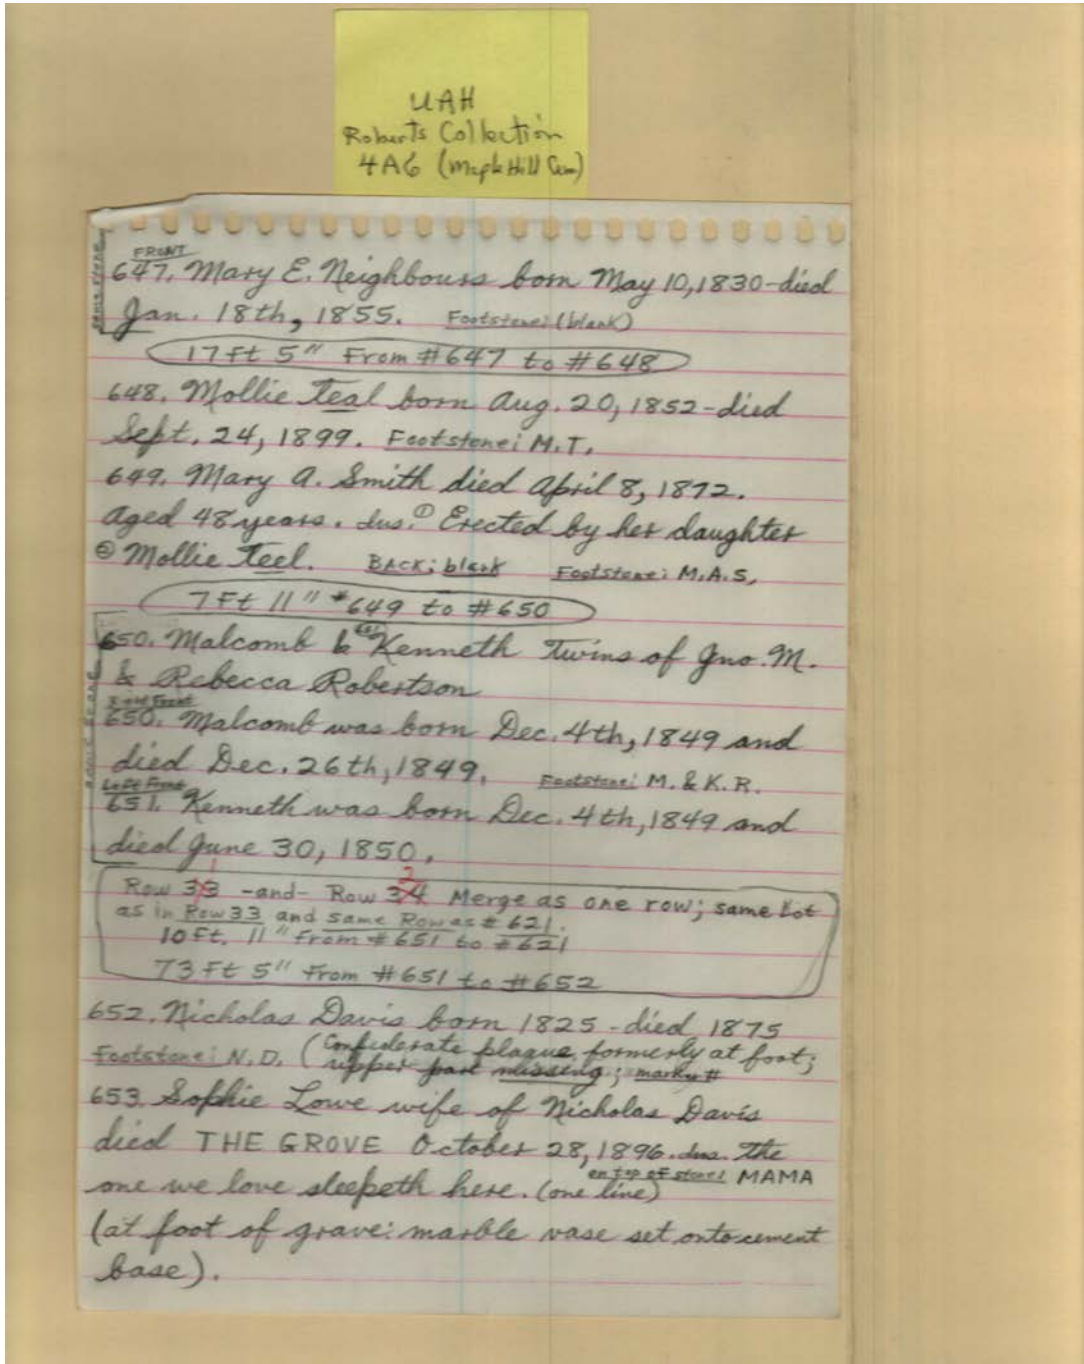 UAH
Roberts Collection
4A6 (Maple Hill Cem)
FRONT
647. Mary E. Neighbours born May 10, 1830-died
Jan. 18th, 1855. Footstone: (blank)
17 Ft 5" From #647 to #648
648. Mollie Teal born Aug. 20, 1852-died
Sept. 24, 1899. Footstone: M.T.
649. Mary A. Smith died April 8, 1872.
Aged 48 years. Ins. ① Erected by her daughter
② Mollie Teel. BACK: blank Footstone: M.A.S.
7 Ft 11" #649 to #650
650. Malcomb & 651 Kenneth Twins of Jno. M.
& Rebecca Robertson
Right Front
650. Malcomb was born Dec. 4th, 1849 and
died Dec. 26th, 1849. Footstone: M. & K. R.
Left Front
651. Kenneth was born Dec. 4th, 1849 and
died June 30, 1850.
1 2
Row 33 -and- Row 34 Merge as one row; same Lot
as in Row 33 and same Row as #621.
10 Ft. 11" From #651 to #621
73 Ft 5" From #651 to #652
652. Nicholas Davis born 1825 - died 1875
Footstone: N.D. (Confederate plaque formerly at foot;
upper part missing;
653. Sophie Lowe wife of Nicholas Davis
died THE GROVE October 28, 1896. Ins. The
on top of stone: MAMA
one we love sleepeth here. (one line)
(at foot of grave: marble vase set onto cement
base).